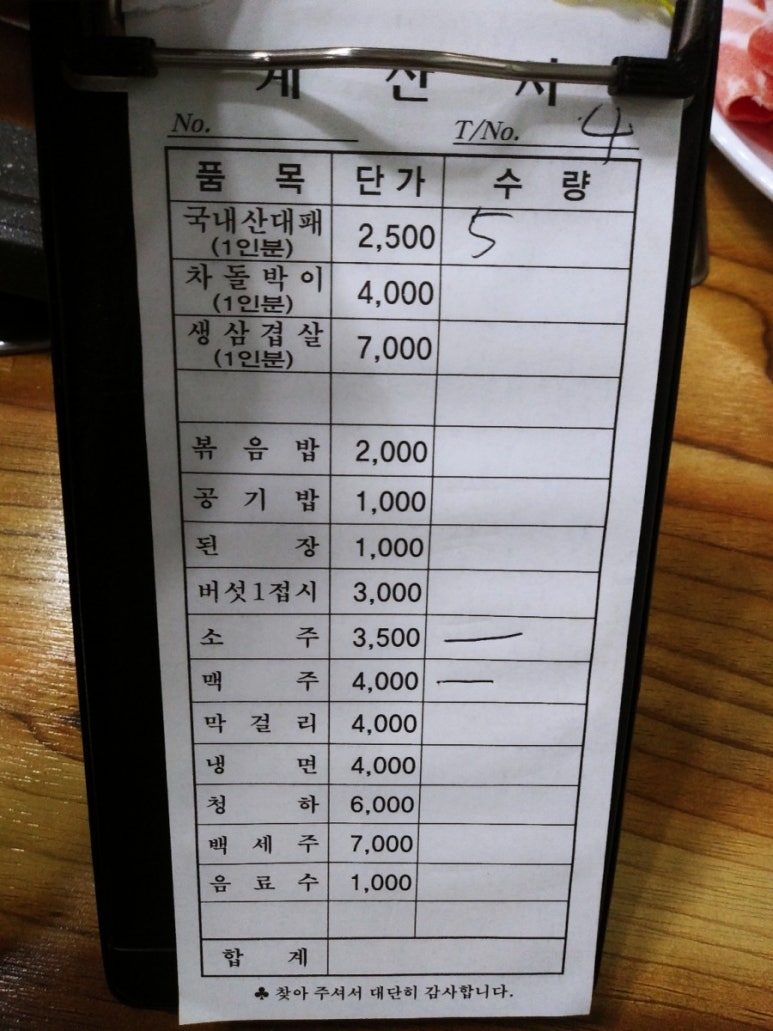 계 산 서
No. T/No. 4
품 목 단 가 수 량
국내산대패 (1인분) 2,500 5
차 돌 박 이 (1인분) 4,000
생 삼 겹 살 (1인분) 7,000
볶 음 밥 2,000
공 기 밥 1,000
된 장 1,000
버섯1접시 3,000
소 주 3,500 一
맥 주 4,000 一
막 걸 리 4,000
냉 면 4,000
청 하 6,000
백 세 주 7,000
음 료 수 1,000
합 계
♣ 찾아 주셔서 대단히 감사합니다.